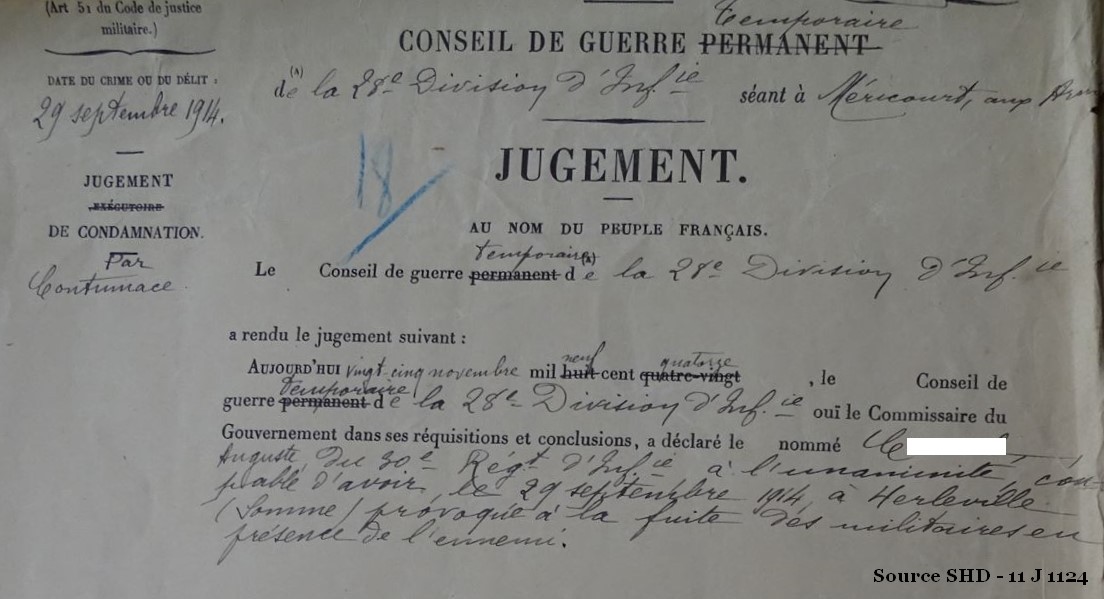 (Art 51 du Code de justice
militaire.)
temporaire
CONSEIL DE GUERRE PERMANENT
de (A) la 28e Division d'Inf.ie séant à Méricourt, aux
DATE DU CRIME OU DU DÉLIT :
29 septembre 1914.
18
JUGEMENT.
JUGEMENT
EXÉCUTOIRE
DE CONDAMNATION.
Par
Contumace
AU NOM DU PEUPLE FRANÇAIS.
temporaire
Le Conseil de guerre permanent de (A) la 28e Division d'Inf.ie
a rendu le jugement suivant :
neuf quatorze
AUJOURD'HUI vingt-cinq novembre mil huit cent quatre-vingt , le Conseil de
temporaire
guerre permanent de la 28e Division d'Inf.ie ouï le Commissaire du
Gouvernement dans ses réquisitions et conclusions, a déclaré le nommé
Auguste du 30e Régt d'Inf.ie à l'unanimité, cou-
pable d'avoir, le 29 septembre 1914, à Herleville
(Somme) provoqué à la fuite des militaires en
présence de l'ennemi.
Source SHD - 11 J 1124